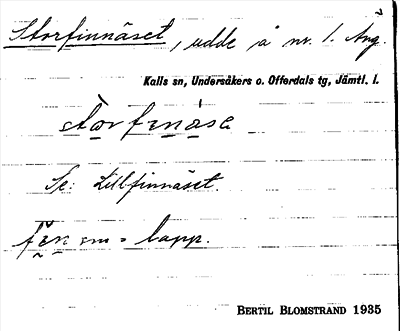 Storfinnäset, udde å nr. 1. Ång.
Kalls sn, Undersåkers o. Offerdals tg, Jämtl. l.
stòrfɪnǻsɛ
Se: Lillfinnäset.
fɪn sm = lapp.
BERTIL BLOMSTRAND 1935